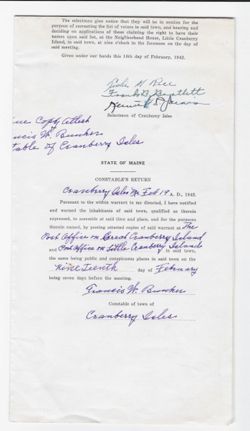 The selectmen give notice that they will be in session for the
purpose of correcting the list of voters in said town, and hearing and
deciding on applications of those claiming the right to have their
names upon said list, at the Neighborhood House, Little Cranberry
Island, in said town, at nine o'clock in the forenoon on the day of
said meeting.
Given under our hands this 14th day of February, 1942.
Rice
Frank B. Bartlett
Selectmen of Cranberry Isles
ue Copy Attest
ancis W. Bunker
table of Cranberry Isles
STATE OF MAINE
CONSTABLE'S RETURN
Cranberry Isles Me Feb 19 A. D., 1942.
Pursuant to the within warrant to me directed, I have notified
and warned the inhabitants of said town, qualified as therein
expressed, to assemble at said time and place, and for the purposes
therein named, by posting attested copies of said warrant at The
Post Office on Great Cranberry Island
and Post Office on Little Cranberry Island
the same being public and conspicuous places in said town on the
Nineteenth day of February
being seven days before the meeting.
Francis W. Bunker
Constable of town of
Cranberry Isles